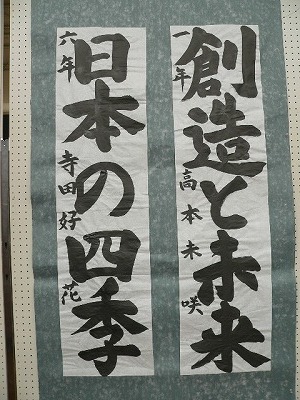 創造と未来
一年 高本未咲
日本の四季
六年 寺田好花